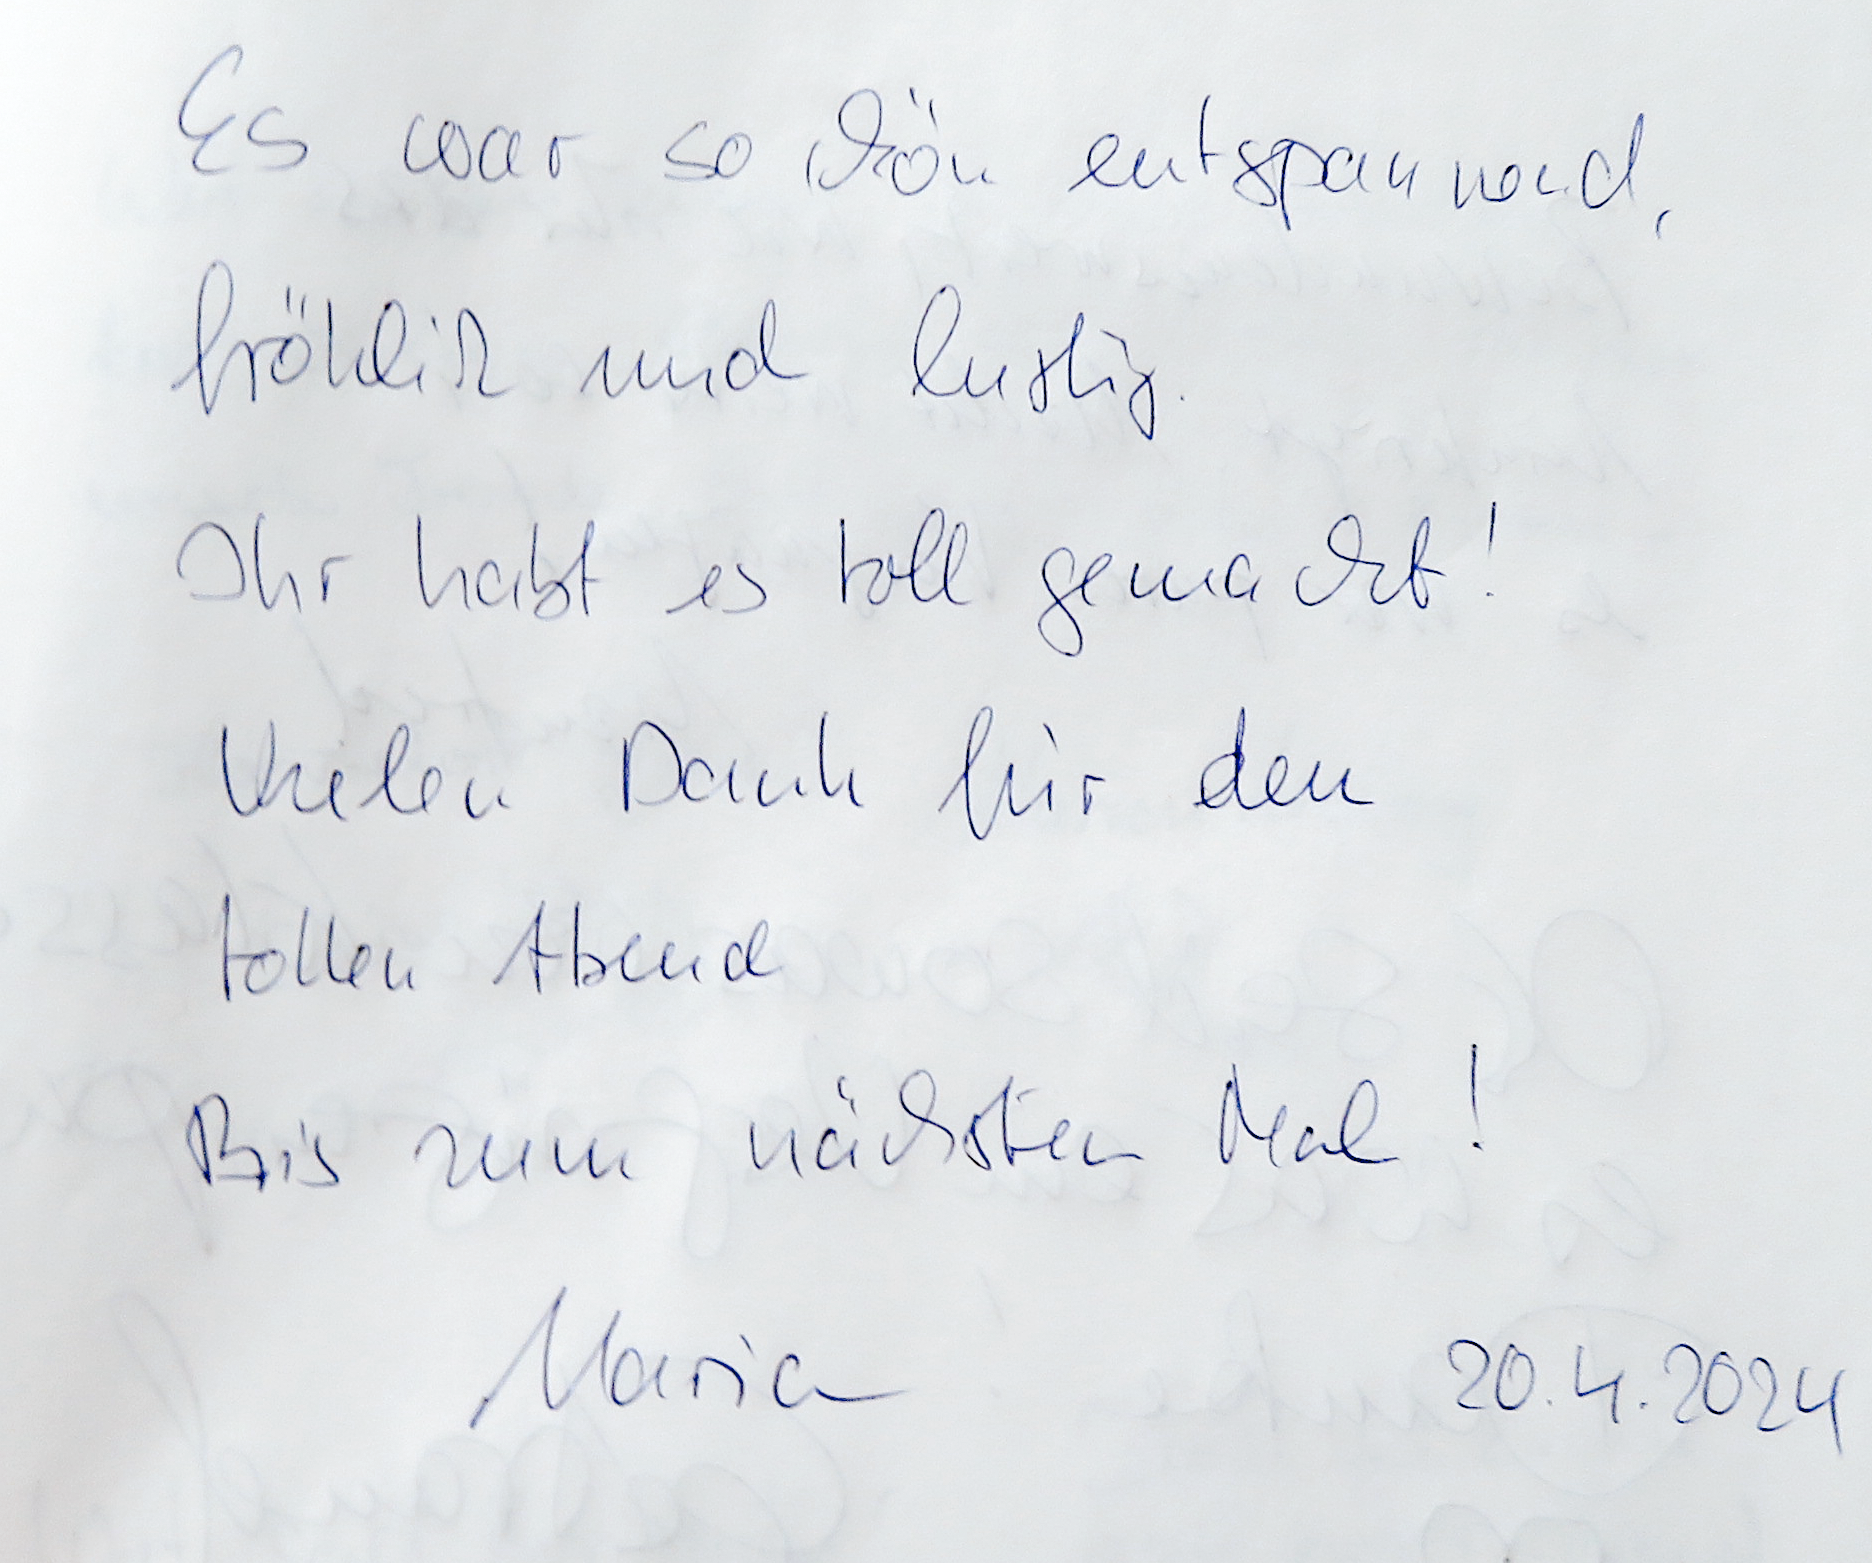 Es war so schön entspannend,
fröhlich und lustig.
Ihr habt es toll gemacht!
Vielen Dank für den
tollen Abend
Bis zum nächsten Mal!
Maria 20.4.2024